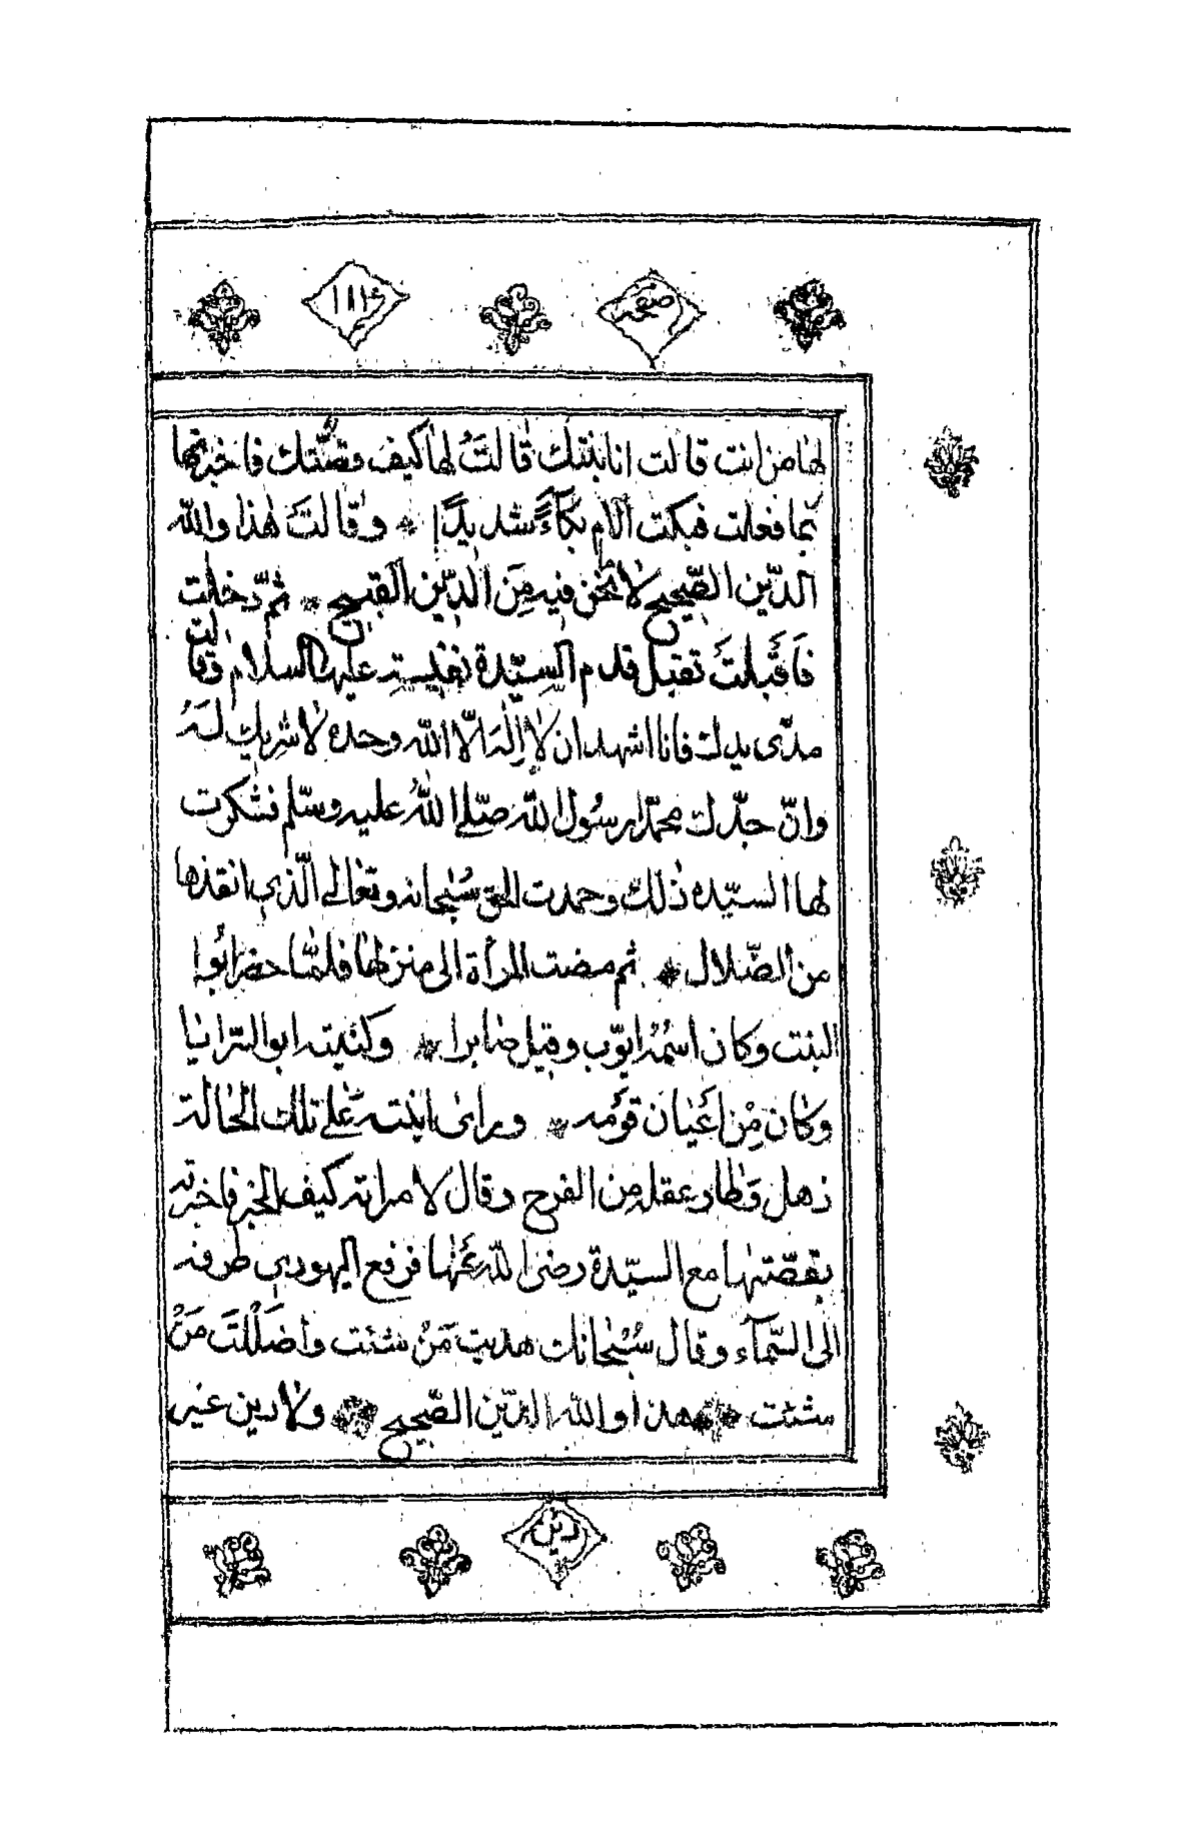 صفحه ١١٤
لها من انت قالت انا بنتك قالت لها كيف قصّتك فاخبرتها
بما فعلت فبكت الام بكآءً شديدًا * وقالت هذا والله
الدّين الصّحيح لا نحن فيه مِنَ الدّين القبيح * ثمّ دخلت
فَاَقبلتَ تقبل قدم السيّدة نفيسة عليها السلام وقالت
مدّى يدك فانا اشهد ان لا إله الّا الله وحده لا شريك لهُ
وانّ جدّك محمّدا رسُول الله صلّى اللهُ عليه وسلّم فشكرت
لها السيّده ذلك وحمدت الحق سُبحانه وتعالى الّذى انقذها
من الضّلال * ثم مضت المرأة الى منزلها فلمّا حضر ابُوا
البنت وكان اسمُهُ ايّوب وقيل صابرا * وكنيته ابو السّرايا
وكان مِنْ اَعْيان قَوْمه * وراى ابنته عَلى تلك الحالة
ذهل وَطار عقله مِن الفرح وقال لامراته كيف الخبر فاخبرته
بقصّتها مع السيّدة رضى الله عَنْها فرفع اليهودى طرفه
الى السّمآء وقال سُبْحانك هديت مَنْ شئت وأضَلَلْتَ مَنْ
شئت * هذا والله الدّين الصّحيح * ولا دين غير
دين